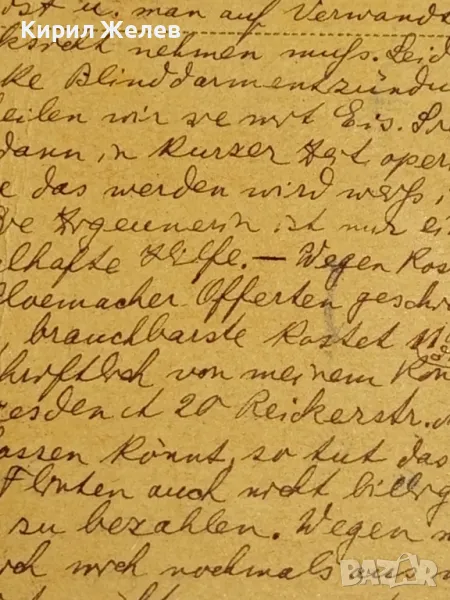 Кирил Желев
ost u. man auf Verwands
ksicht nehmen muß. Leid
ke Blinddarmentzündu
eilen wir sie mit Eis. Sr
dann, in kurzer Zeit, oper
e das werden wird weiß,
Zigeunerin ist nur ei
elhafte Hilfe. — Wegen Kos
Offerten geschr
, brauchbarste kostet
chriftlich von meinem Kön
resden A 20 Reickerstr.
lassen könnt, so tut das
Flinten auch nicht billig
zu bezahlen. Wegen m
ich mich nochmals aus
bazar